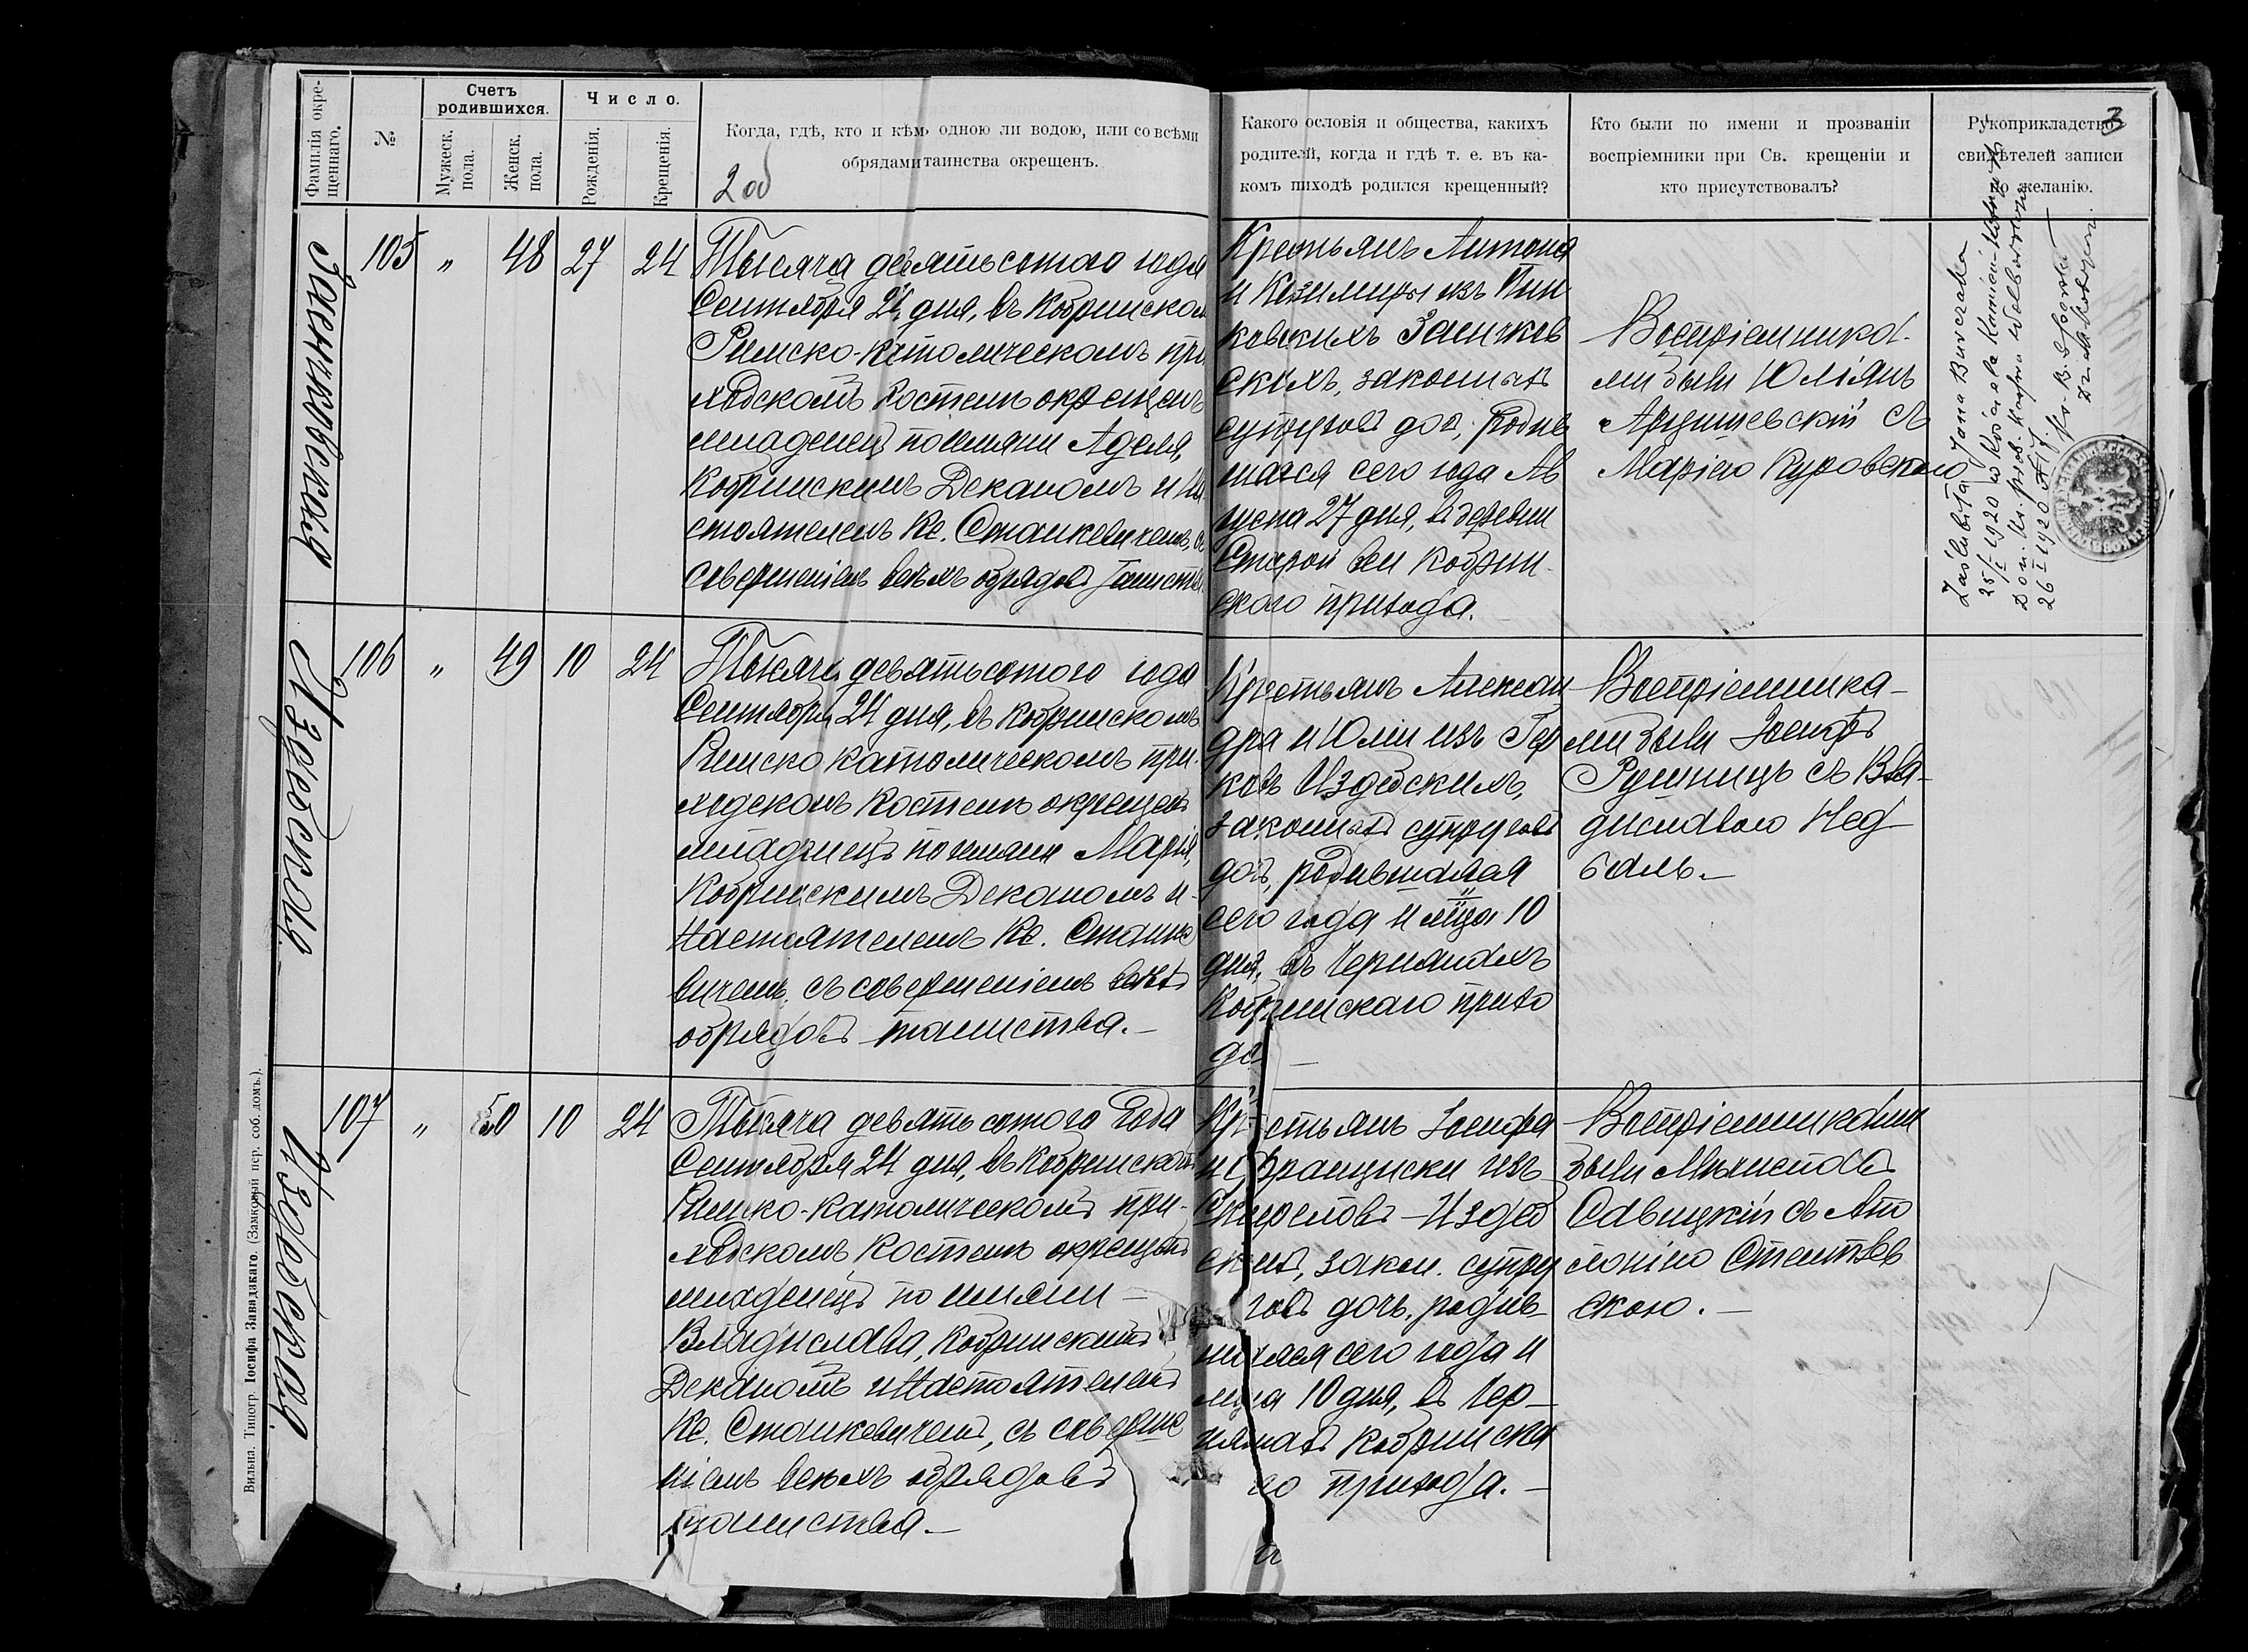 Фамилія окре-
щеннаго.
№
Счетъ
родившихся.
Мужеск.
пола.
Женск.
пола.
Число.
Рожденія.
Крещенія.
Когда, гдѣ, кто и кѣмъ одною ли водою, или со всѣми
обрядами таинства окрещенъ.
2об
Какого ословія и общества, какихъ
родителй, когда и гдѣ т. е. въ ка-
комъ пиходѣ родился крещенный?
Кто были по имени и прозваніи
воспріемники при Св. крещеніи и
кто присутствовалъ?
Рукоприкладство
свидѣтелей записи
по желанію.
3
Заенчковская
105 " 48 27 24
Тысяча девятьсотаго года
Сентября 24 дня, въ Кобринском
Римско-католическомъ при
ходскомъ костелѣ окрещенъ
младенецъ по имяни Аделя,
Кобринскимъ Деканомъ и На-
стоятелемъ Кс. Станкевичемъ, съ
совершеніемъ всѣхъ обрядовъ таинства
Крестьянъ Антона
и Казимиры изъ Пин-
ковскихъ Заенчков
скихъ, законныхъ
супруговъ доч, родив
шаяся сего года Ав
густа 27 дня, въ деревни
Старой веи Кобрин-
скаго прихода.
Воспріемника-
ми были Юліянъ
Арцишевскій съ
Маріею Куровскою
Zaślubiła Jana Burczaka
25/I 1920 w Kościele
26 I 1920
Издебская
106 " 49 10 24
Тысяча девятьсотого года
Сентября 24 дня, въ Кобринскомъ
Римско католическомъ при-
ходскомъ костелѣ окрещенъ
младенецъ по имяни Марія,
Кобринскимъ Деканомъ и-
Настоятелемъ Кс. Станке
вичемъ, съ совершеніемъ всѣхъ
обрядовъ таинства.—
Крестьянъ Алексан-
дра и Юліи изъ Гер
ковъ Издебскихъ,
законныхъ супруговъ
дочь, родившаяся
сего года и мца 10
дня, въ Чернянахъ
Кобринскаго прихо
да —
Воспріемника-
ми были Іосифъ
Рушницъ съ Вла-
диславою Нед
баль.—
Издебская
107 " 50 10 24
Тысяча девятьсотого Года
Сентября 24 дня, въ Кобринскомъ
Римско-католическомъ при-
ходскомъ костелѣ окрещенъ
младенецъ по имяни —
Владислава, Кобринскимъ
Деканомъ и Настоятелемъ
Кс. Станкевичемъ, съ соверше
ніемъ всѣхъ обрядовъ
таинства.—
Крестьянъ Іосифа
и Францишки изъ
Скиреловъ—Издеб
скихъ, закон. супру
говъ дочь, родив-
шаяся сего года и
мца 10 дня, въ Чер-
нянахъ Кобринска
го прихода.—
Воспріемниками
были
Савицкій съ Апо
лоніею
скою.—
Вильна. Типогр. Іосифа Завадзкаго. (Замковый пер. соб. домъ.).